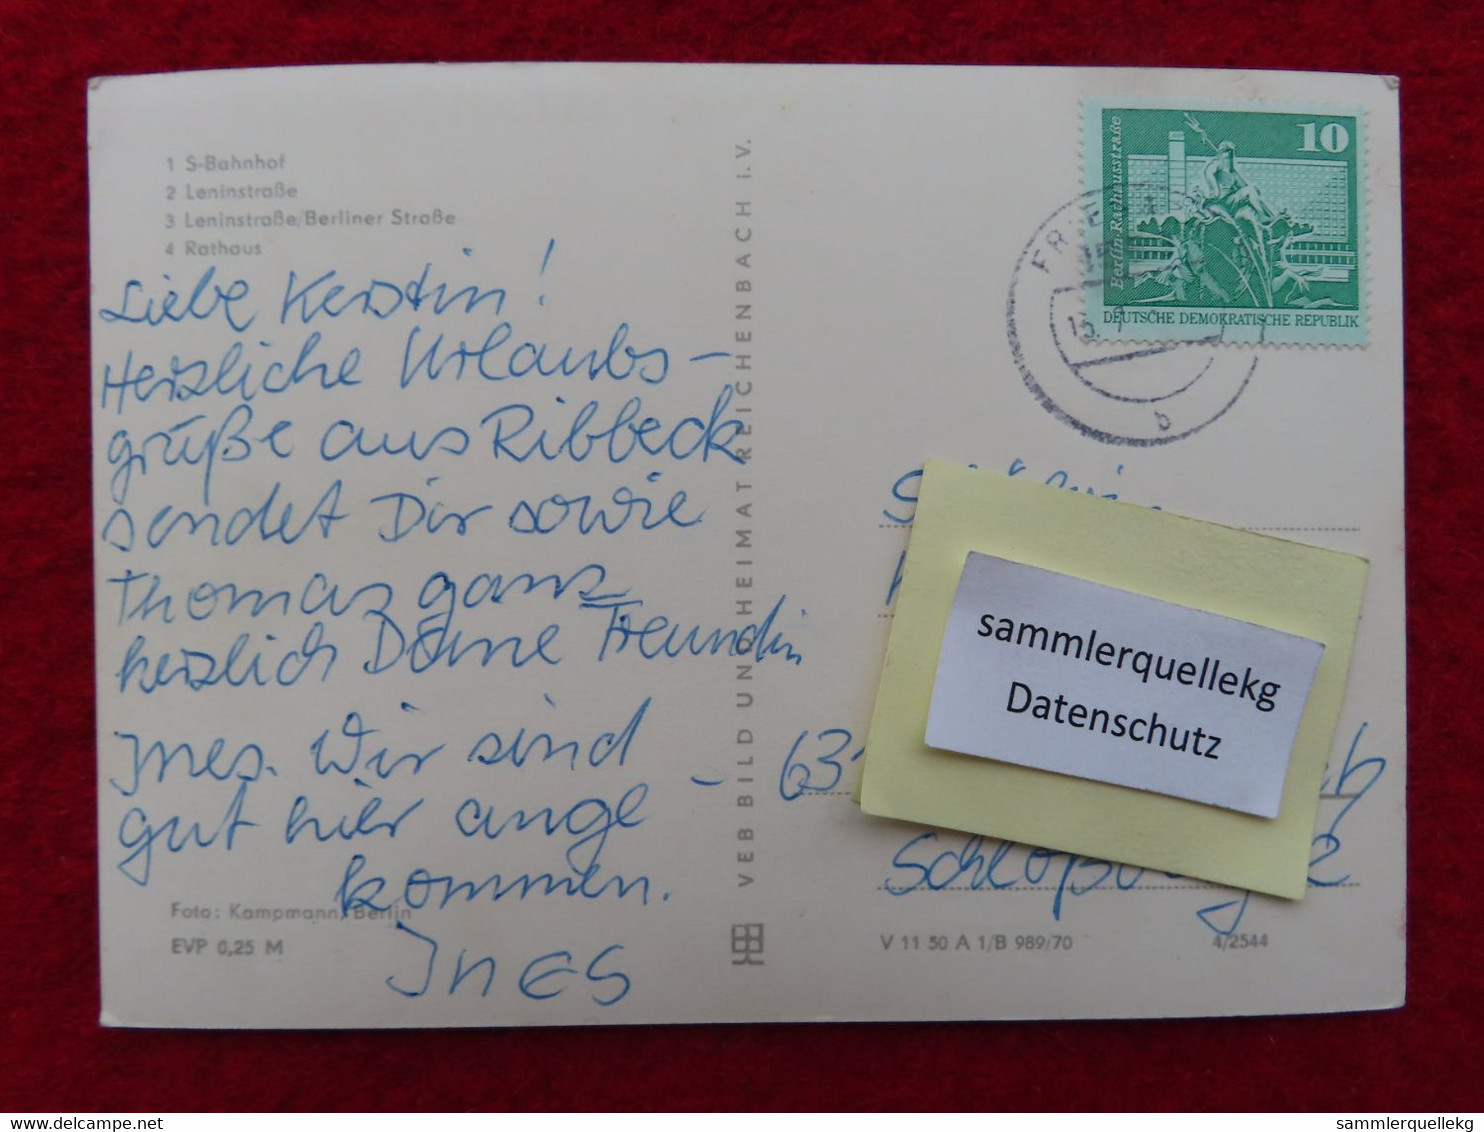 1 S-Bahnhof
2 Leninstraße
3 Leninstraße/Berliner Straße
4 Rathaus
Liebe Kerstin!
Herzliche Urlaubs-
grüße aus Ribbeck
sendet Dir sowie
Thomas ganz
herzlich Deine Freundin
Ines. Wir sind
gut hier ange-
kommen.
INES
Foto: Kampmann, Berlin
EVP 0,25 M
VEB BILD UND HEIMAT REICHENBACH I. V.
10
Berlin, Rathausstraße
DEUTSCHE DEMOKRATISCHE REPUBLIK
b
sammlerquellekg
Datenschutz
V 11 50 A 1/B 989/70
4/2544
delcampe.net
sammlerquellekg